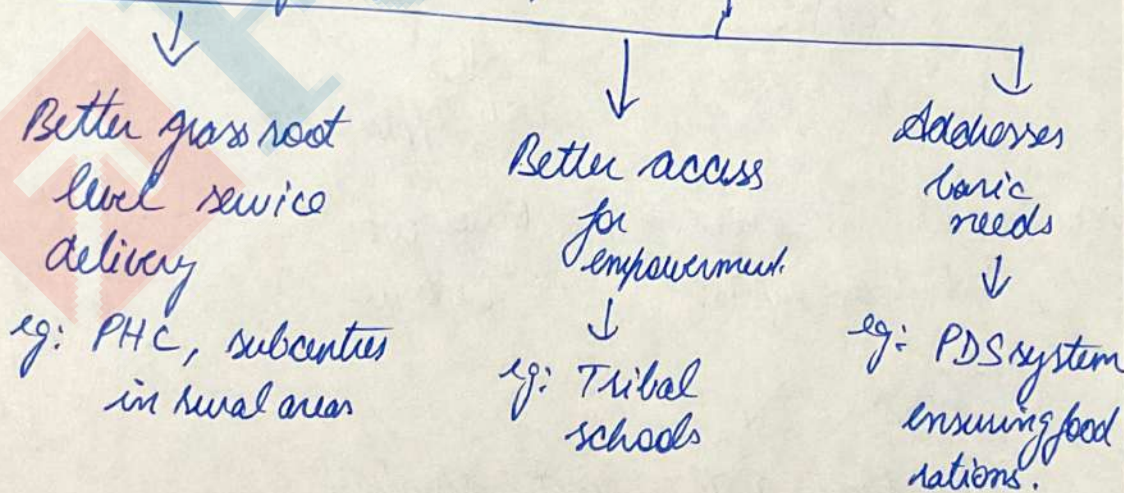 Better grass root
level service
delivery
eg: PHC, subcentres
in rural areas
Better access
for
empowerment.
eg: Tribal
schools
Addresses
basic
needs
eg: PDS system
ensuring food
rations.